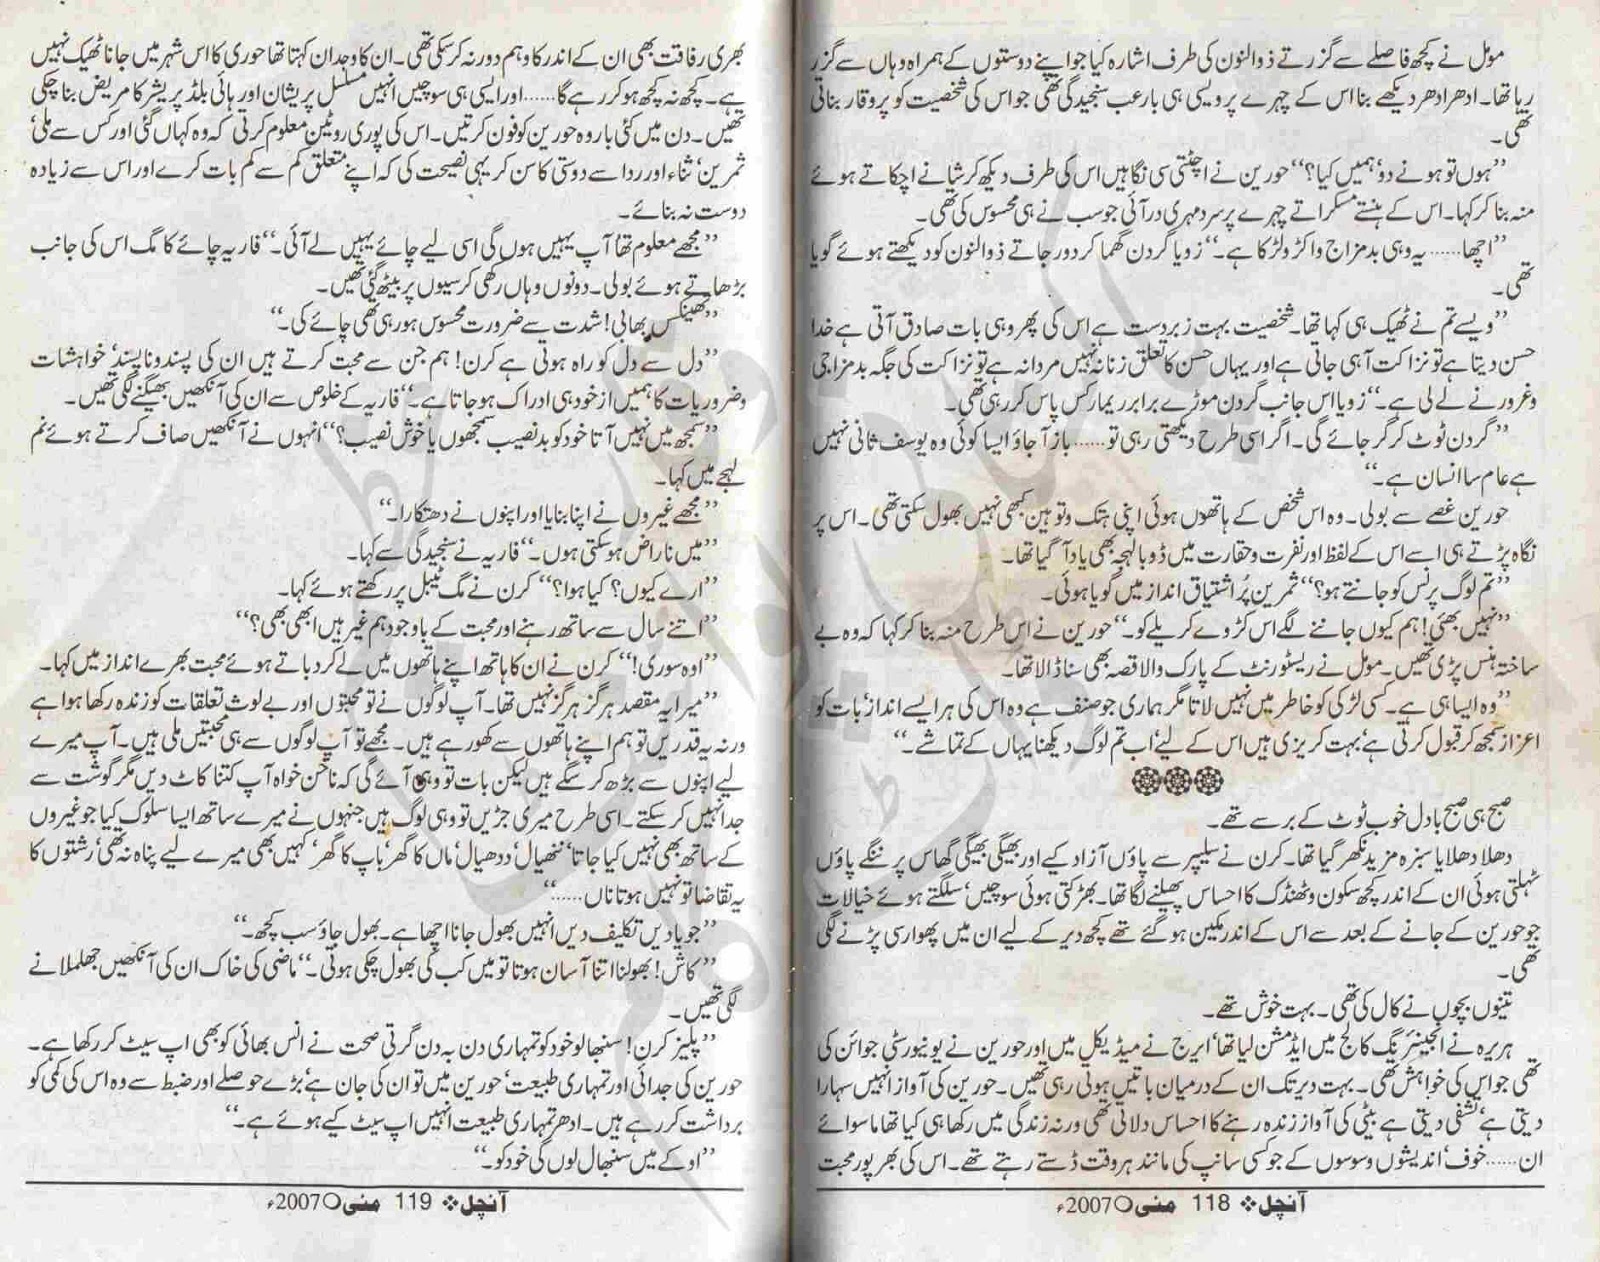 مومل نے کچھ فاصلے سے گزرتے ذوالنون کی طرف اشارہ کیا جو اپنے دوستوں کے ہمراہ وہاں سے گزر
رہا تھا۔ ادھر ادھر دیکھے بنا اس کے چہرے پر ویسی ہی بارعب سنجیدگی تھی جو اس کی شخصیت کو پروقار بناتی
تھی۔
”ہوں تو ہونے دو‘ ہمیں کیا؟“ حورین نے اچٹتی سی نگاہیں اس کی طرف دیکھ کر شانے اچکاتے ہوئے
منہ بنا کر کہا۔ اس کے ہنستے مسکراتے چہرے پر سرد مہری در آئی جو سب نے ہی محسوس کی تھی۔
”اچھا...... یہ وہی بدمزاج واکڑو لڑکا ہے۔“ زویا گردن گھما کر دور جاتے ذوالنون کو دیکھتے ہوئے گویا
تھی۔
”ویسے تم نے ٹھیک ہی کہا تھا۔ شخصیت بہت زبردست ہے اس کی پھر وہی بات صادق آتی ہے خدا
حسن دیتا ہے تو نزاکت آہی جاتی ہے اور یہاں حسن کا تعلق زنانہ نہیں مردانہ ہے تو نزاکت کی جگہ بدمزاجی
وغرور نے لے لی ہے۔“ زویا اس جانب گردن موڑے برابر ریمارکس پاس کر رہی تھی۔
”گردن ٹوٹ کر گر جائے گی۔ اگر اسی طرح دیکھتی رہی تو...... باز آجاؤ ایسا کوئی وہ یوسف ثانی نہیں
ہے عام سا انسان ہے۔“
حورین غصے سے بولی۔ وہ اس شخص کے ہاتھوں ہوئی اپنی ہتک وتوہین کبھی نہیں بھول سکتی تھی۔ اس پر
نگاہ پڑتے ہی اسے اس کے لفظ اور نفرت و حقارت میں ڈوبا لہجہ بھی یاد آگیا تھا۔
”تم لوگ پرنس کو جانتے ہو؟“ ثمرین پُر اشتیاق انداز میں گویا ہوئی۔
”نہیں بھئی! ہم کیوں جاننے لگے اس کڑوے کریلے کو۔“ حورین نے اس طرح منہ بنا کر کہا کہ وہ بے
ساختہ ہنس پڑی تھیں۔ مومل نے ریسٹورنٹ کے پارک والا قصہ بھی سنا ڈالا تھا۔
”وہ ایسا ہی ہے۔ کسی لڑکی کو خاطر میں نہیں لاتا مگر ہماری جو صنف ہے وہ اس کی ہر ایسے انداز‘ بات کو
اعزاز سمجھ کر قبول کرتی ہے‘ بہت کریزی ہیں اس کے لیے‘ اب تم لوگ دیکھنا یہاں کے تماشے۔“
صبح ہی صبح بادل خوب ٹوٹ کے برسے تھے۔
دھلا دھلایا سبزہ مزید نکھر گیا تھا۔ کرن نے سلیپر سے پاؤں آزاد کیے اور بھیگی بھیگی گھاس پر ننگے پاؤں
ٹہلتی ہوئی ان کے اندر کچھ سکون و ٹھنڈک کا احساس پھیلنے لگا تھا۔ بھڑکتی ہوئی سوچیں‘ سلگتے ہوئے خیالات
جو حورین کے جانے کے بعد سے اس کے اندر مکین ہوگئے تھے کچھ دیر کے لیے ان میں پھوار سی پڑنے لگی
تھی۔
تینوں بچوں نے کال کی تھی۔ بہت خوش تھے۔
ہریرہ نے انجینئرنگ کالج میں ایڈمشن لیا تھا‘ ایرج نے میڈیکل میں اور حورین نے یونیورسٹی جوائن کی
تھی جو اس کی خواہش تھی۔ بہت دیر تک ان کے درمیان باتیں ہوتی رہی تھیں۔ حورین کی آواز انہیں سہارا
دیتی ہے‘ تشفی دیتی ہے بیٹی کی آواز زندہ رہنے کا احساس دلاتی تھی ورنہ زندگی میں رکھا ہی کیا تھا ماسوائے
ان...... خوف‘ اندیشوں وسوسوں کے جو کسی سانپ کی مانند ہر وقت ڈستے رہتے تھے۔ اس کی بھرپور محبت
آنچل ❖ 118 مئی ○ 2007ء
بھری رفاقت بھی ان کے اندر کا وہم دور نہ کرسکی تھی۔ ان کا وجدان کہتا تھا حوری کا اس شہر میں جانا ٹھیک نہیں
ہے۔ کچھ نہ کچھ ہو کر رہے گا...... اور ایسی ہی سوچیں انہیں مسلسل پریشان اور ہائی بلڈ پریشر کا مریض بنا چکی
تھیں۔ دن میں کئی بار وہ حورین کو فون کرتیں۔ اس کی پوری روٹین معلوم کرتی کہ وہ کہاں گئی اور کس سے ملی‘
ثمرین‘ ثناء اور ردا سے دوستی کا سن کر یہی نصیحت کی کہ اپنے متعلق کم سے کم بات کرے اور اس سے زیادہ
دوست نہ بنائے۔
”مجھے معلوم تھا آپ یہیں ہوں گی اسی لیے چائے یہیں لے آئی۔“ فاریہ چائے کا مگ اس کی جانب
بڑھاتے ہوئے بولی۔ دونوں وہاں رکھی کرسیوں پر بیٹھ گئی تھیں۔
”تھینکس بھابی! شدت سے ضرورت محسوس ہورہی تھی چائے کی۔“
”دل سے دل کو راہ ہوتی ہے کرن! ہم جن سے محبت کرتے ہیں ان کی پسند و ناپسند‘ خواہشات
وضروریات کا ہمیں ازخود ہی ادراک ہوجاتا ہے۔“ فاریہ کے خلوص سے ان کی آنکھیں بھیگنے لگی تھیں۔
”سمجھ میں نہیں آتا خود کو بدنصیب سمجھوں یا خوش نصیب؟“ انہوں نے آنکھیں صاف کرتے ہوئے نم
لہجے میں کہا۔
”مجھے غیروں نے اپنا بنایا اور اپنوں نے دھتکارا۔“
”میں ناراض ہوسکتی ہوں۔“ فاریہ نے سنجیدگی سے کہا۔
”ارے کیوں؟ کیا ہوا؟“ کرن نے مگ ٹیبل پر رکھتے ہوئے کہا۔
”اتنے سال سے ساتھ رہنے اور محبت کے باوجود ہم غیر ہیں ابھی بھی؟“
”اوہ سوری!“ کرن نے ان کا ہاتھ اپنے ہاتھوں میں لے کر دباتے ہوئے محبت بھرے انداز میں کہا۔
”میرا یہ مقصد ہرگز ہرگز نہیں تھا۔ آپ لوگوں نے تو محبتوں اور بے لوث تعلقات کو زندہ رکھا ہوا ہے
ورنہ یہ قدریں تو ہم اپنے ہاتھوں سے کھو رہے ہیں۔ مجھے تو آپ لوگوں سے ہی محبتیں ملی ہیں۔ آپ میرے
لیے اپنوں سے بڑھ کر سگے ہیں لیکن بات تو وہی آئے گی کہ ناخن خواہ آپ کتنا کاٹ دیں مگر گوشت سے
جدا نہیں کرسکتے۔ اسی طرح میری جڑیں تو وہی لوگ ہیں جنہوں نے میرے ساتھ ایسا سلوک کیا جو غیروں
کے ساتھ بھی نہیں کیا جاتا‘ ننھیال‘ ددھیال‘ ماں کا گھر‘ باپ کا گھر‘ کہیں بھی میرے لیے پناہ نہ تھی‘ رشتوں کا
یہ تقاضا تو نہیں ہوتا ناں......“
”جو یادیں تکلیف دیں انہیں بھول جانا اچھا ہے۔ بھول جاؤ سب کچھ۔“
”کاش! بھولنا اتنا آسان ہوتا تو میں کب کی بھول چکی ہوتی۔“ ماضی کی خاک ان کی آنکھیں جھلملانے
لگی تھیں۔
”پلیز کرن! سنبھالو خود کو تمہاری دن بہ دن گرتی صحت نے انس بھائی کو بھی اپ سیٹ کر رکھا ہے۔
حورین کی جدائی اور تمہاری طبیعت‘ حورین میں تو ان کی جان ہے‘ بڑے حوصلے اور ضبط سے وہ اس کی کمی کو
برداشت کر رہے ہیں۔ ادھر تمہاری طبیعت انہیں اپ سیٹ کیے ہوئے ہے۔“
”اوکے میں سنبھال لوں گی خود کو۔“
آنچل ❖ 119 مئی ○ 2007ء